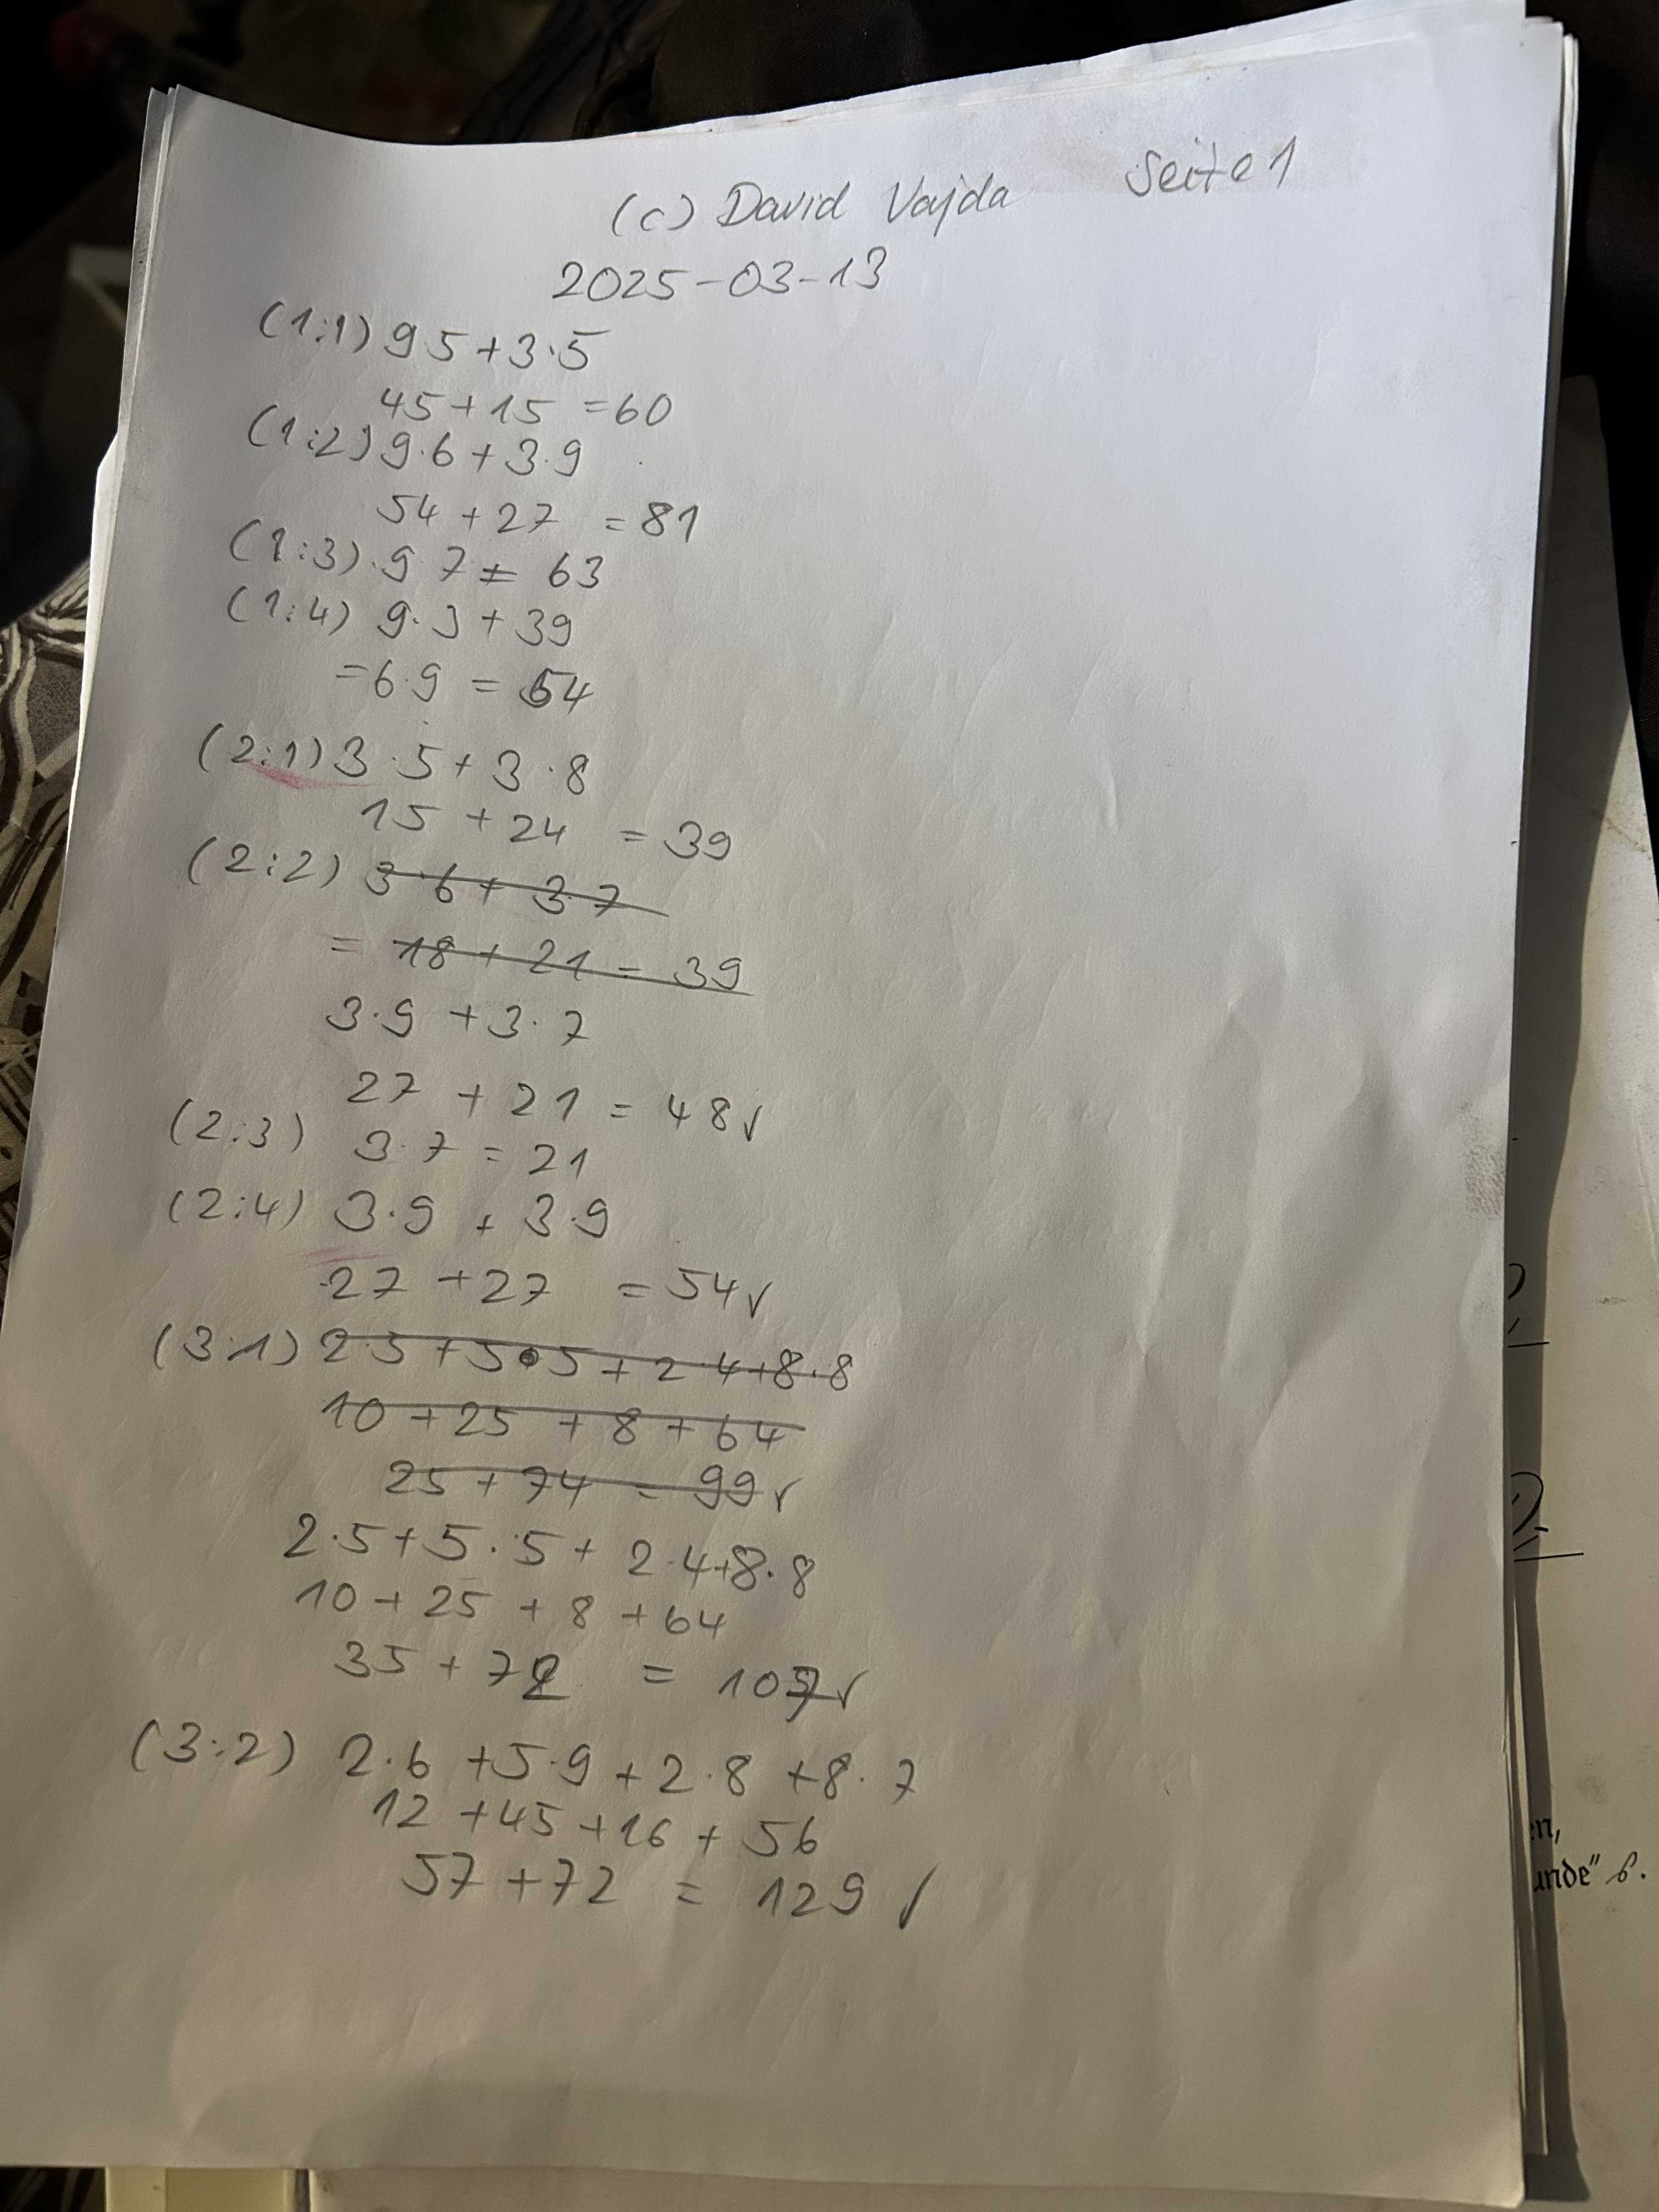 (c) David Vajda Seite 1
2025-03-13
(1:1) 9 5 + 3·5
45 + 15 = 60
(1:2) 9·6 + 3·9
54 + 27 = 81
(1:3) 9 7 = 63
(1:4) 9·3 + 39
= 6·9 = 54
(2:1) 3·5 + 3·8
15 + 24 = 39
(2:2) 3·6 + 3·7
= 18 + 21 = 39
3·9 + 3·7
27 + 21 = 48 ✓
(2:3) 3·7 = 21
(2:4) 3·9 + 3·9
27 + 27 = 54 ✓
(3:1) 2·5 + 5·5 + 2·4 + 8·8
10 + 25 + 8 + 64
25 + 74 = 99 ✓
2·5 + 5·5 + 2·4 + 8·8
10 + 25 + 8 + 64
35 + 72 = 107 ✓
(3:2) 2·6 + 5·9 + 2·8 + 8·7
12 + 45 + 16 + 56
57 + 72 = 129 ✓
en,
unde" 6.